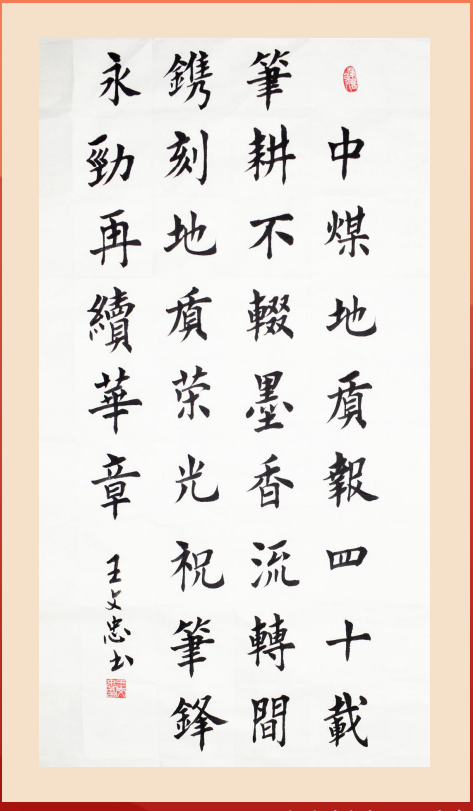 中煤地质報四十載
筆耕不輟墨香流轉間
鐫刻地质荣光祝筆鋒
永勁再續華章
王文忠书